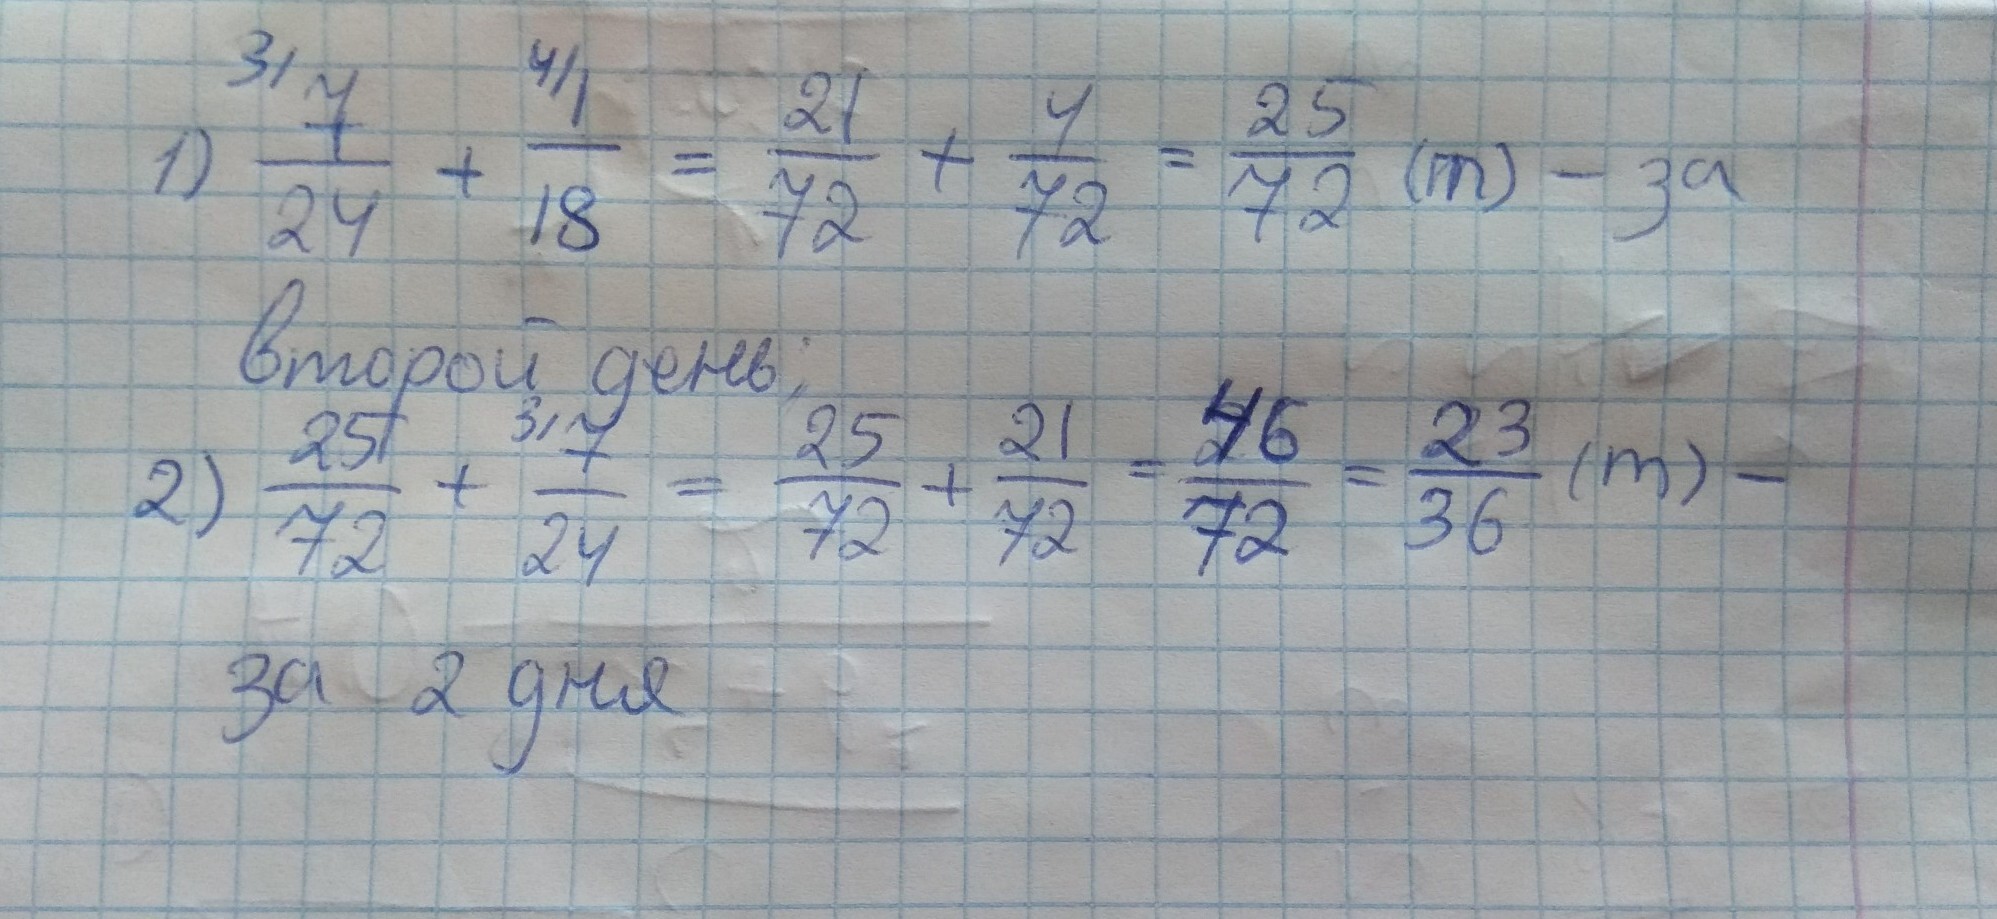 1) ³⁾7/24 + ⁴⁾1/18 = 21/72 + 4/72 = 25/72 (т) - за
второй день;
2) 25/72 + ³⁾7/24 = 25/72 + 21/72 = 46/72 = 23/36 (т) -
за 2 дня